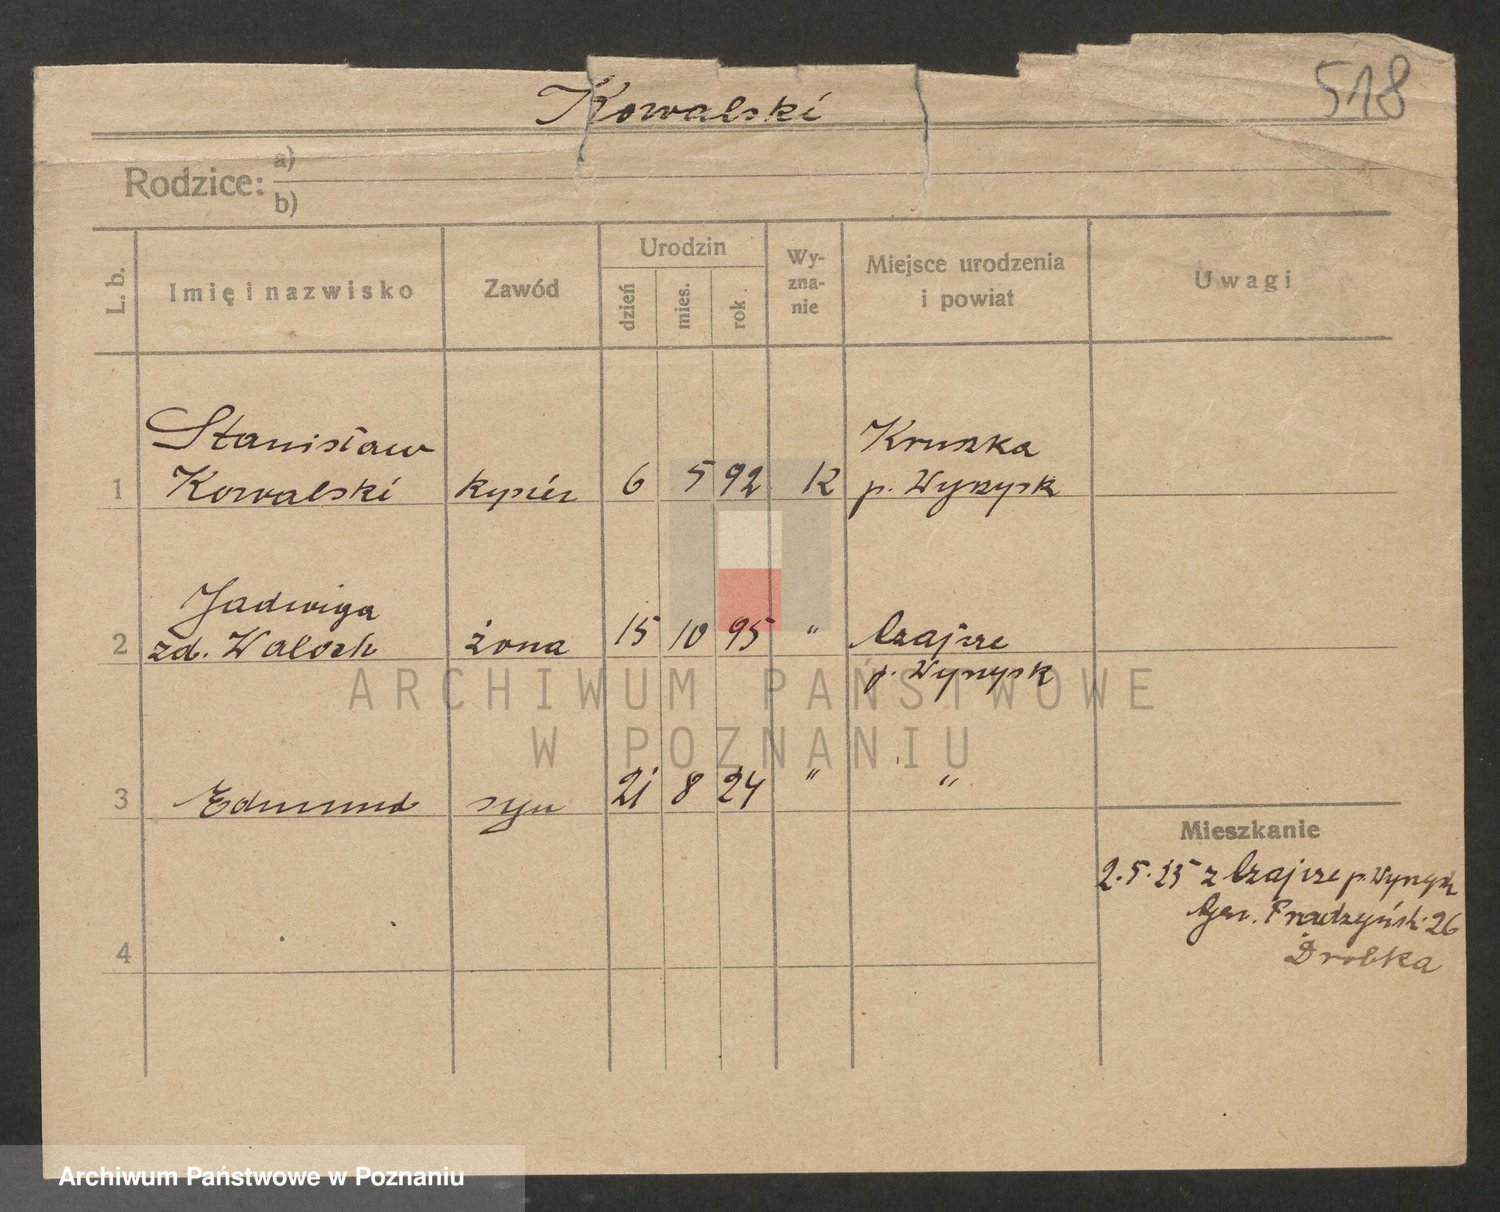 518
Kowalski
Rodzice: a)
b)
L. b.
Imię i nazwisko
Zawód
Urodzin
dzień
mies.
rok.
Wy-
zna-
nie
Miejsce urodzenia
i powiat
Uwagi
Stanisław
Kruszka
1 Kowalski kupiec 6 5 92 k p. Wyrzysk
Jadwiga
2 zd. Waloch żona 15 10 95 " Czajcze
p. Wyrzysk
3 Edmund syn 21 8 24 " "
4
Mieszkanie
2.5.25 z Czajcze p. Wyrzysk
Gen. Prądzyńsk. 26
Drobka
ARCHIWUM PAŃSTWOWE
W POZNANIU
Archiwum Państwowe w Poznaniu